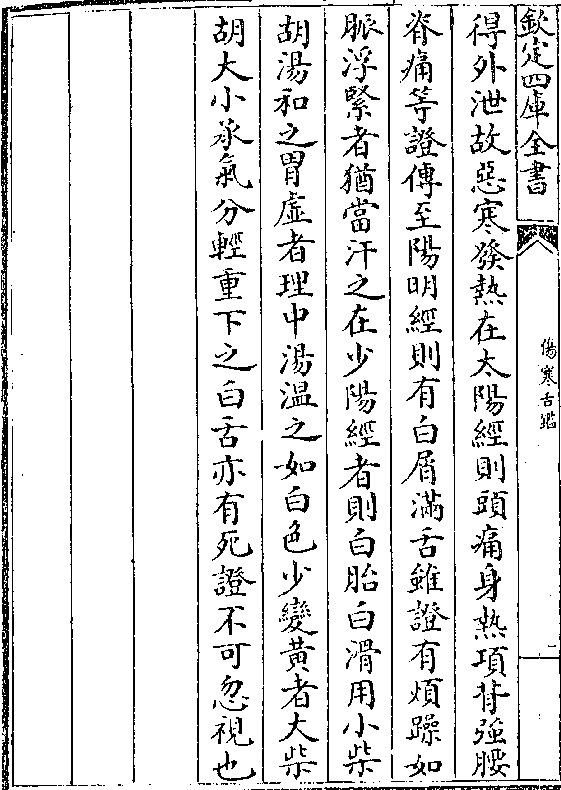 欽定四庫全書
傷寒舌鑑
一
得外泄故惡寒發熱在太陽經則頭痛身熱項背強腰
脊痛等證傳至陽明經則有白屑滿舌雖證有煩躁如
脈浮緊者猶當汗之在少陽經者則白胎白滑用小柴
胡湯和之胃虛者理中湯溫之如白色少變黃者大柴
胡大小承氣分輕重下之白舌亦有死證不可忽視也